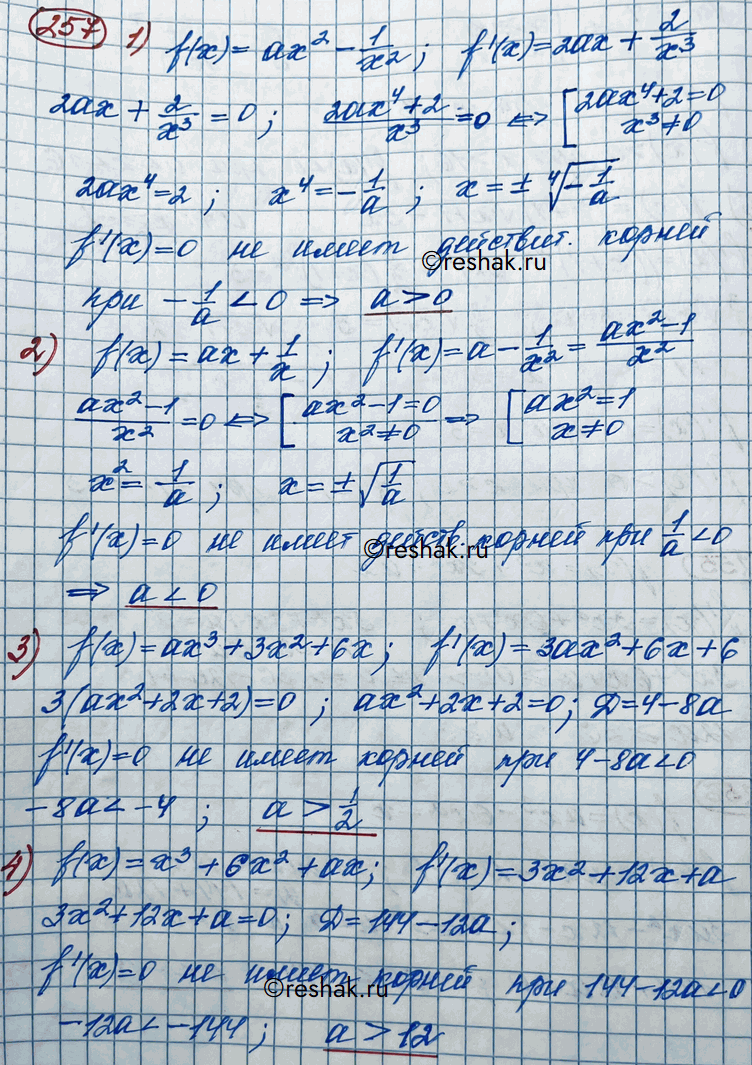 257 1) f(x) = ax² - 1/x²; f'(x) = 2ax + 2/x³
2ax + 2/x³ = 0; (2ax⁴+2)/x³ = 0 ⇔ [2ax⁴+2=0
x³≠0
2ax⁴=2; x⁴ = -1/a; x = ± ⁴√(-1/a)
f'(x)=0 не имеет действит. корней
©reshak.ru
при -1/a < 0 ⇒ a > 0
2) f(x) = ax + 1/x; f'(x) = a - 1/x² = (ax²-1)/x²
(ax²-1)/x² = 0 ⇔ [ax²-1=0 ⇒ [ax²=1
x²≠0 x≠0
x² = 1/a; x = ±√(1/a)
f'(x)=0 не имеет действ. корней при 1/a < 0
©reshak.ru
⇒ a < 0
3) f(x) = ax³+3x²+6x; f'(x) = 3ax²+6x+6
3(ax²+2x+2)=0; ax²+2x+2=0; D=4-8a
f'(x)=0 не имеет корней при 4-8a<0
-8a < -4; a > 1/2
4) f(x) = x³+6x²+ax; f'(x) = 3x²+12x+a
3x²+12x+a=0; D=144-12a;
f'(x)=0 не имеет корней при 144-12a<0
©reshak.ru
-12a < -144; a > 12